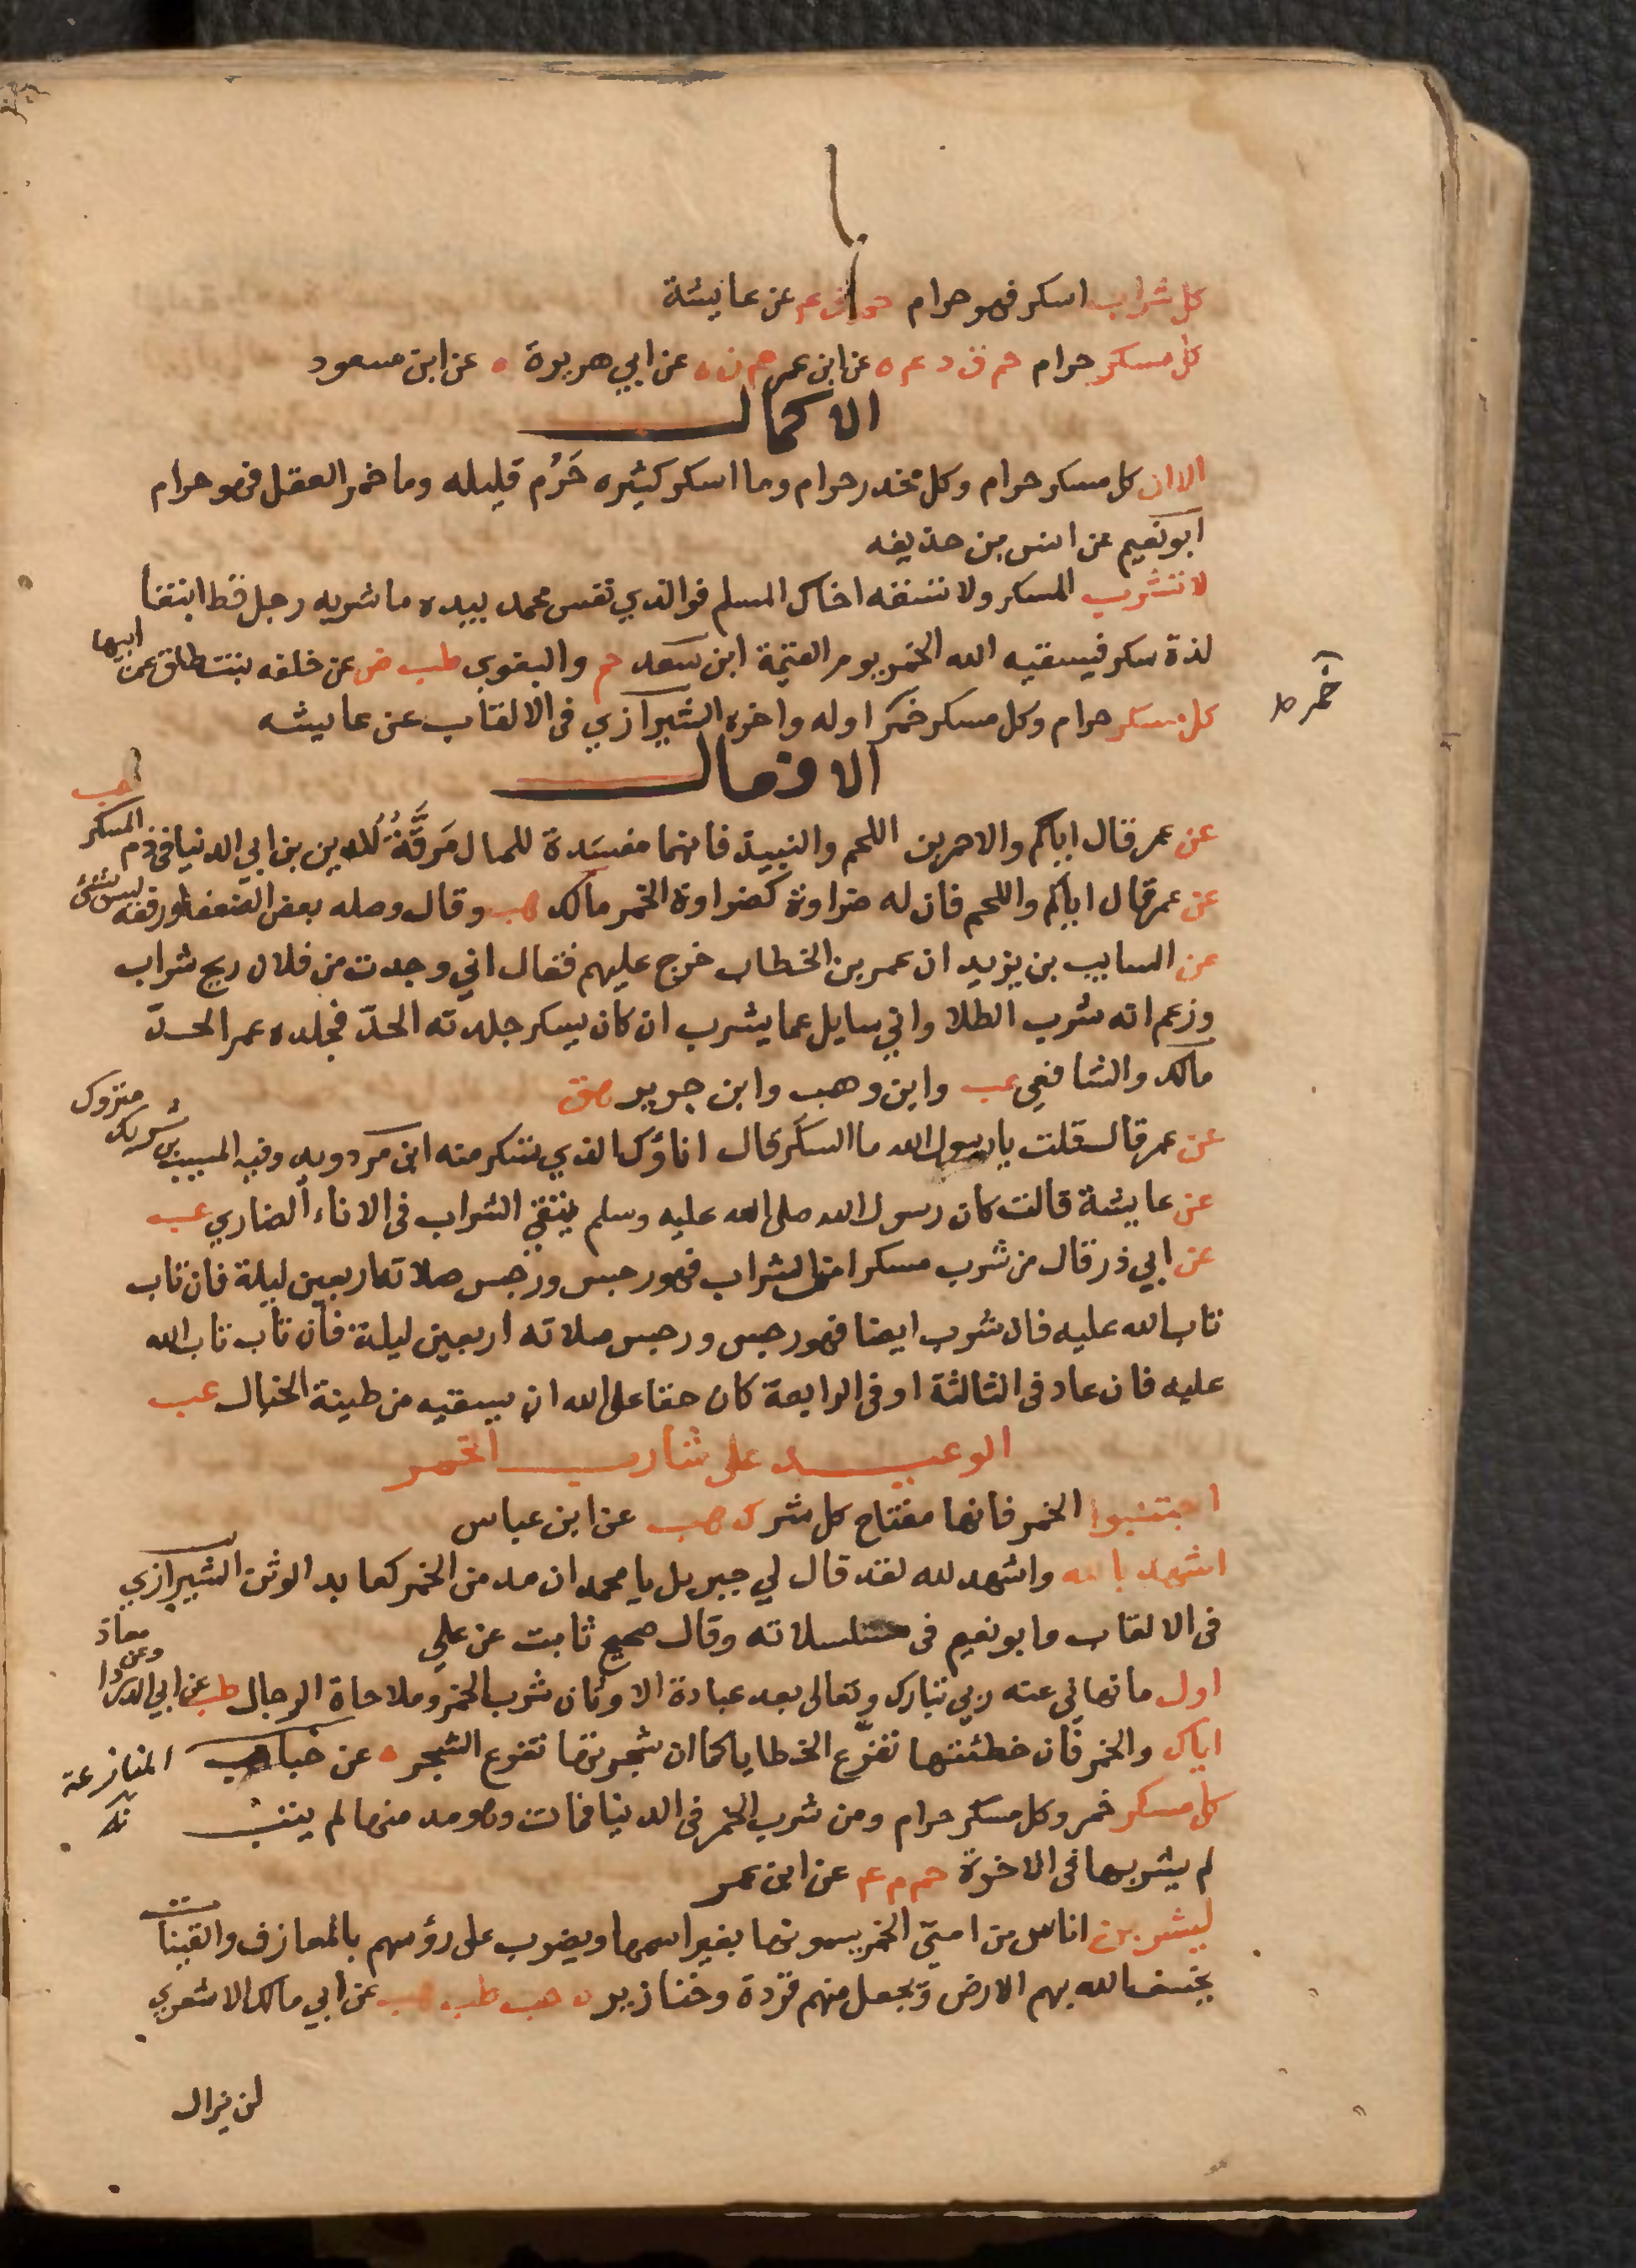 كل شراب اسكر فهو حرام حم ق عم عن عايشة
كل مسكر حرام حم ق د عم ه عن ابن عمر حم ن ه عن ابي هريرة ه عن ابن مسعود
الاكمال
الا ان كل مسكر حرام وكل مخدر حرام وما اسكر كثيره حَرُم قليله وما خمر العقل فهو حرام
ابو نعيم عن انس بن حذيفه
لا تشرب المسكر ولا تسقه اخاك المسلم فوالذي نفس محمد بيده ما شربه رجل قط ابتغا
لذة سكر فيسقيه الله الخمر يوم القيمة ابن سعد حم والبغوي طب ض عن خلده بنت طلق عن ابيها
كل مسكر حرام وكل مسكر خمر اوله واخره الشيرازي فى الالقاب عن عايشه
خمر ط
الافعال
عن عمر قال اياكم والاحمرين اللحم والنبيذ فانهما مفسدة للمال مَرَقَّةٌ للدين بن ابي الدنيا فى ذم المسكر هب
عن عمر قال اياكم واللحم فان له ضراوة كضراوة الخمر مالك هب وقال وصله بعض الضعفا ورفعه ليس بشئ
عن السايب بن يزيد ان عمر بن الخطاب خرج عليهم فقال اني وجدت من فلان ريح شراب
وزعم انه شرب الطلا واني سايل عما يشرب ان كان يسكر جلدته الحدّ فجلده عمر الحدّ
مالك والشافعي عب وابن وهب وابن جرير هق
عن عمر قال قلت يا رسول الله ما السكر قال اناؤك الذي تسكر منه ابن مردويه وفيه المسيب بن شريك متروك
عن عايشة قالت كان رسول الله صلى الله عليه وسلم يتقي الشراب فى الاناء الضاري عب
عن ابي ذر قال من شرب مسكرا من الشراب فهو رجس ورجس صلاته اربعين ليلة فان تاب
تاب الله عليه فان شرب ايضا فهو رجس ورجس صلاته اربعين ليلة فان تاب تاب الله
عليه فان عاد فى الثالثة او فى الرابعة كان حقا على الله ان يسقيه من طينة الخبال عب
الوعيد على شارب الخمر
اجتنبوا الخمر فانها مفتاح كل شر ك هب عن ابن عباس
اشهد بالله واشهد لله لقد قال لي جبريل يا محمد ان مدمن الخمر كعابد الوثن الشيرازي
فى الالقاب وابو نعيم فى مسلسلاته وقال صحيح ثابت عن علي
اول ما نهاني عنه ربي تبارك وتعالى بعد عبادة الاوثان شرب الخمر وملاحاة الرجال طب عن ابي الدردا وعن معاذ
اياك والخمر فان خطئتها تفرع الخطايا كما ان شجرتها تفرع الشجر ه عن خباب
المنازعة
كل مسكر خمر وكل مسكر حرام ومن شرب الخمر فى الدنيا فمات وهو مدمنها لم يتب
لم يشربها فى الاخرة حم م عم عن ابن عمر
ليشربن اناس من امتي الخمر يسمونها بغير اسمها ويضرب على رؤسهم بالمعازف والقينات
يخسف الله بهم الارض ويجعل منهم قردة وخنازير ه حب طب هب عن ابي مالك الاشعري
لن يزال